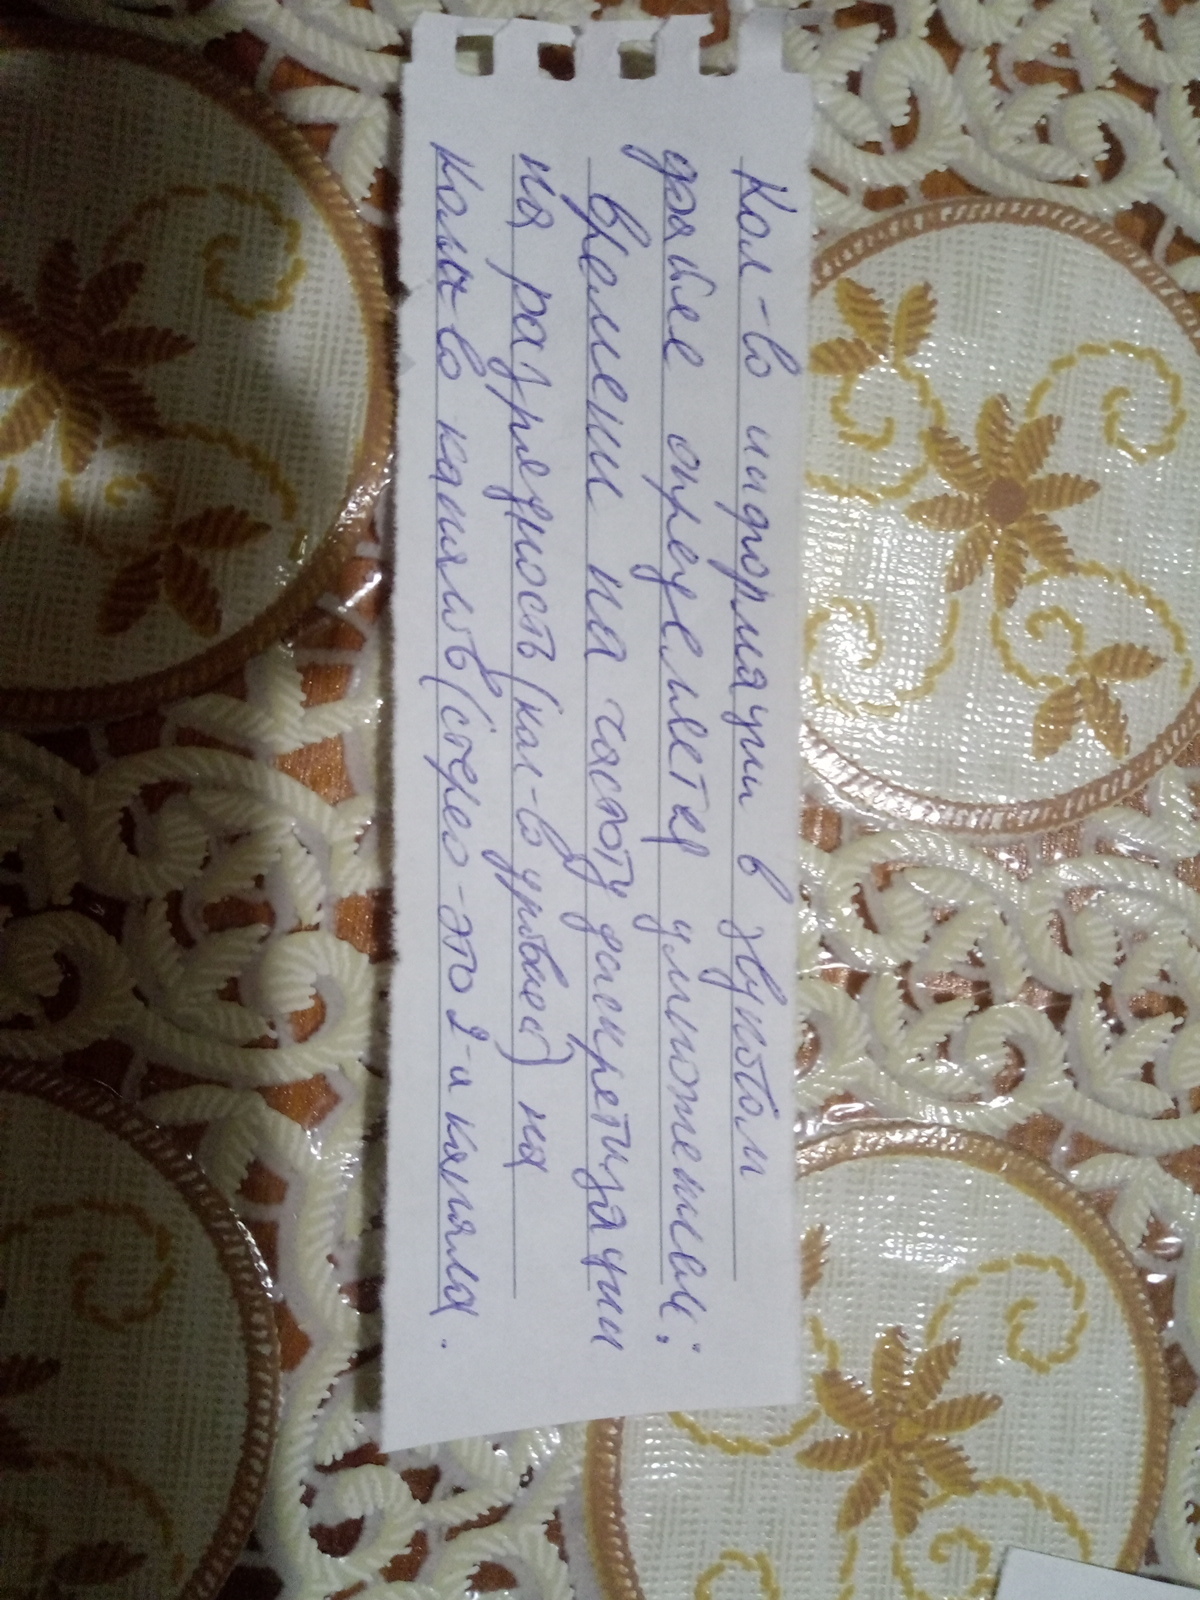 Кол-во информации в звуковом
файле определяется умножением:
времени на частоту дискретизации
на разрядность (кол-во уровней) на
кол-во каналов (стерео-это 2-а канала.